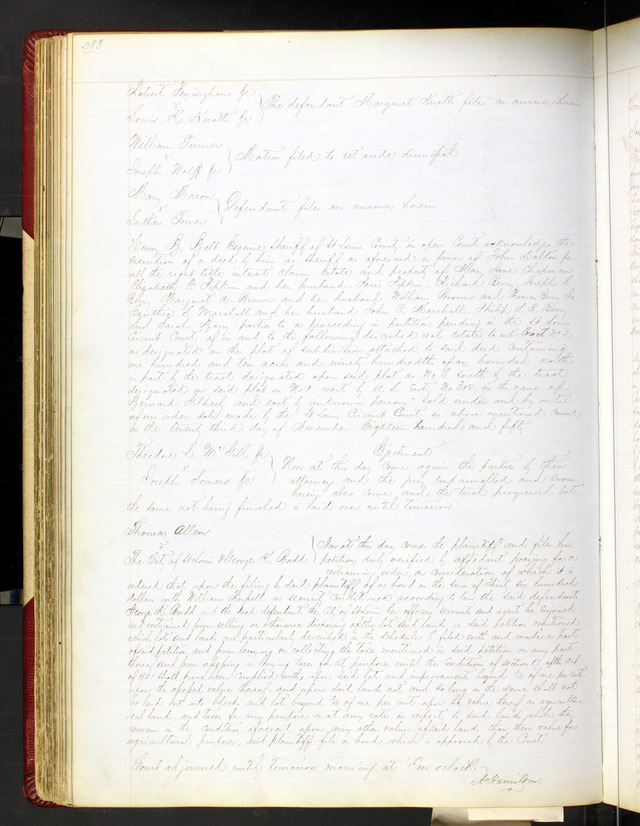 283
Robert
v
Louis K Knott Jr
The defendant Margaret Knott files an answer herein
William Turner
v
Joseph Wolff Jr
Motion filed to set aside dismissal
Mary Macon
v
Luther Tower
Defendant files an answer herein
Sheriff of St Louis County in open Court acknowledges the
execution of a deed by him as Sheriff as aforesaid in favor of John Dalton for
all the right title interest claim estate and property of Mary Jane Chapman
Elizabeth and her husband Richard Berry Joseph L
Berry Margaret A Brown and her husband William Brown and
Cynthia L Marshall and her husband John P Marshall Philip
and Sarah Berry parties to a proceeding in partition pending in the St Louis
Circuit Court of in and to the following described real estate to wit Tract No 2
as designated on the plat of subdivision attached to said deed containing
one hundred and ten acres and ninety two hundredths of an hundred north
in part by the tract designated upon said plat as No 3 south by the tract
designated on said plat as No 1 west by U S Sur No 314 in the name of
Bernard and east by unknown persons Sold under and by virtue
of an order of sale made by the St Louis Circuit Court in above mentioned cause
on the twenty third day of November Eighteen hundred and fifty
Theodore L McGill Jr
v
Joseph Somers Jr
Ejectment
Now at this day come again the parties by their
attorneys and the jury empannelled and sworn
herein also come and the trial progressed but
the same not being finished is laid over until tomorrow
Thomas Allen
v
The City of St Louis & George K Budd
Now at this day comes the plaintiff and files his
petition duly verified by affidavit praying for a
restraining order in consideration of which it is
ordered that upon the filing by said plaintiff of a bond in the sum of thirty six hundred
dollars with William as security conditioned according to law the said defendant
George K Budd and the said defendant the City of St Louis its officers servants and agents be enjoined
and restrained from selling or otherwise disposing of the lot and land in said petition mentioned
which lot and land are particularly described in the schedule filed with and made a part
of said petition and from levying or collecting the taxes mentioned in said petition or any part
thereof and from assessing or levying taxes for any purpose until the conditions of section 17
of shall have been complied with upon said lot and improvements beyond of one per cent
upon the assessed value thereof and upon said land not and so long as the same shall not
be laid out into blocks and lots beyond of one per cent upon the value thereof as agricultu
ral land and taxes for any purpose or at any rate in respect to said land while they
remain in the condition aforesaid upon any other value of said land than their value for
agricultural purposes and plaintiff files a bond which is approved by the Court
Court adjourned until tomorrow morning at Ten o'clock
A Hamilton